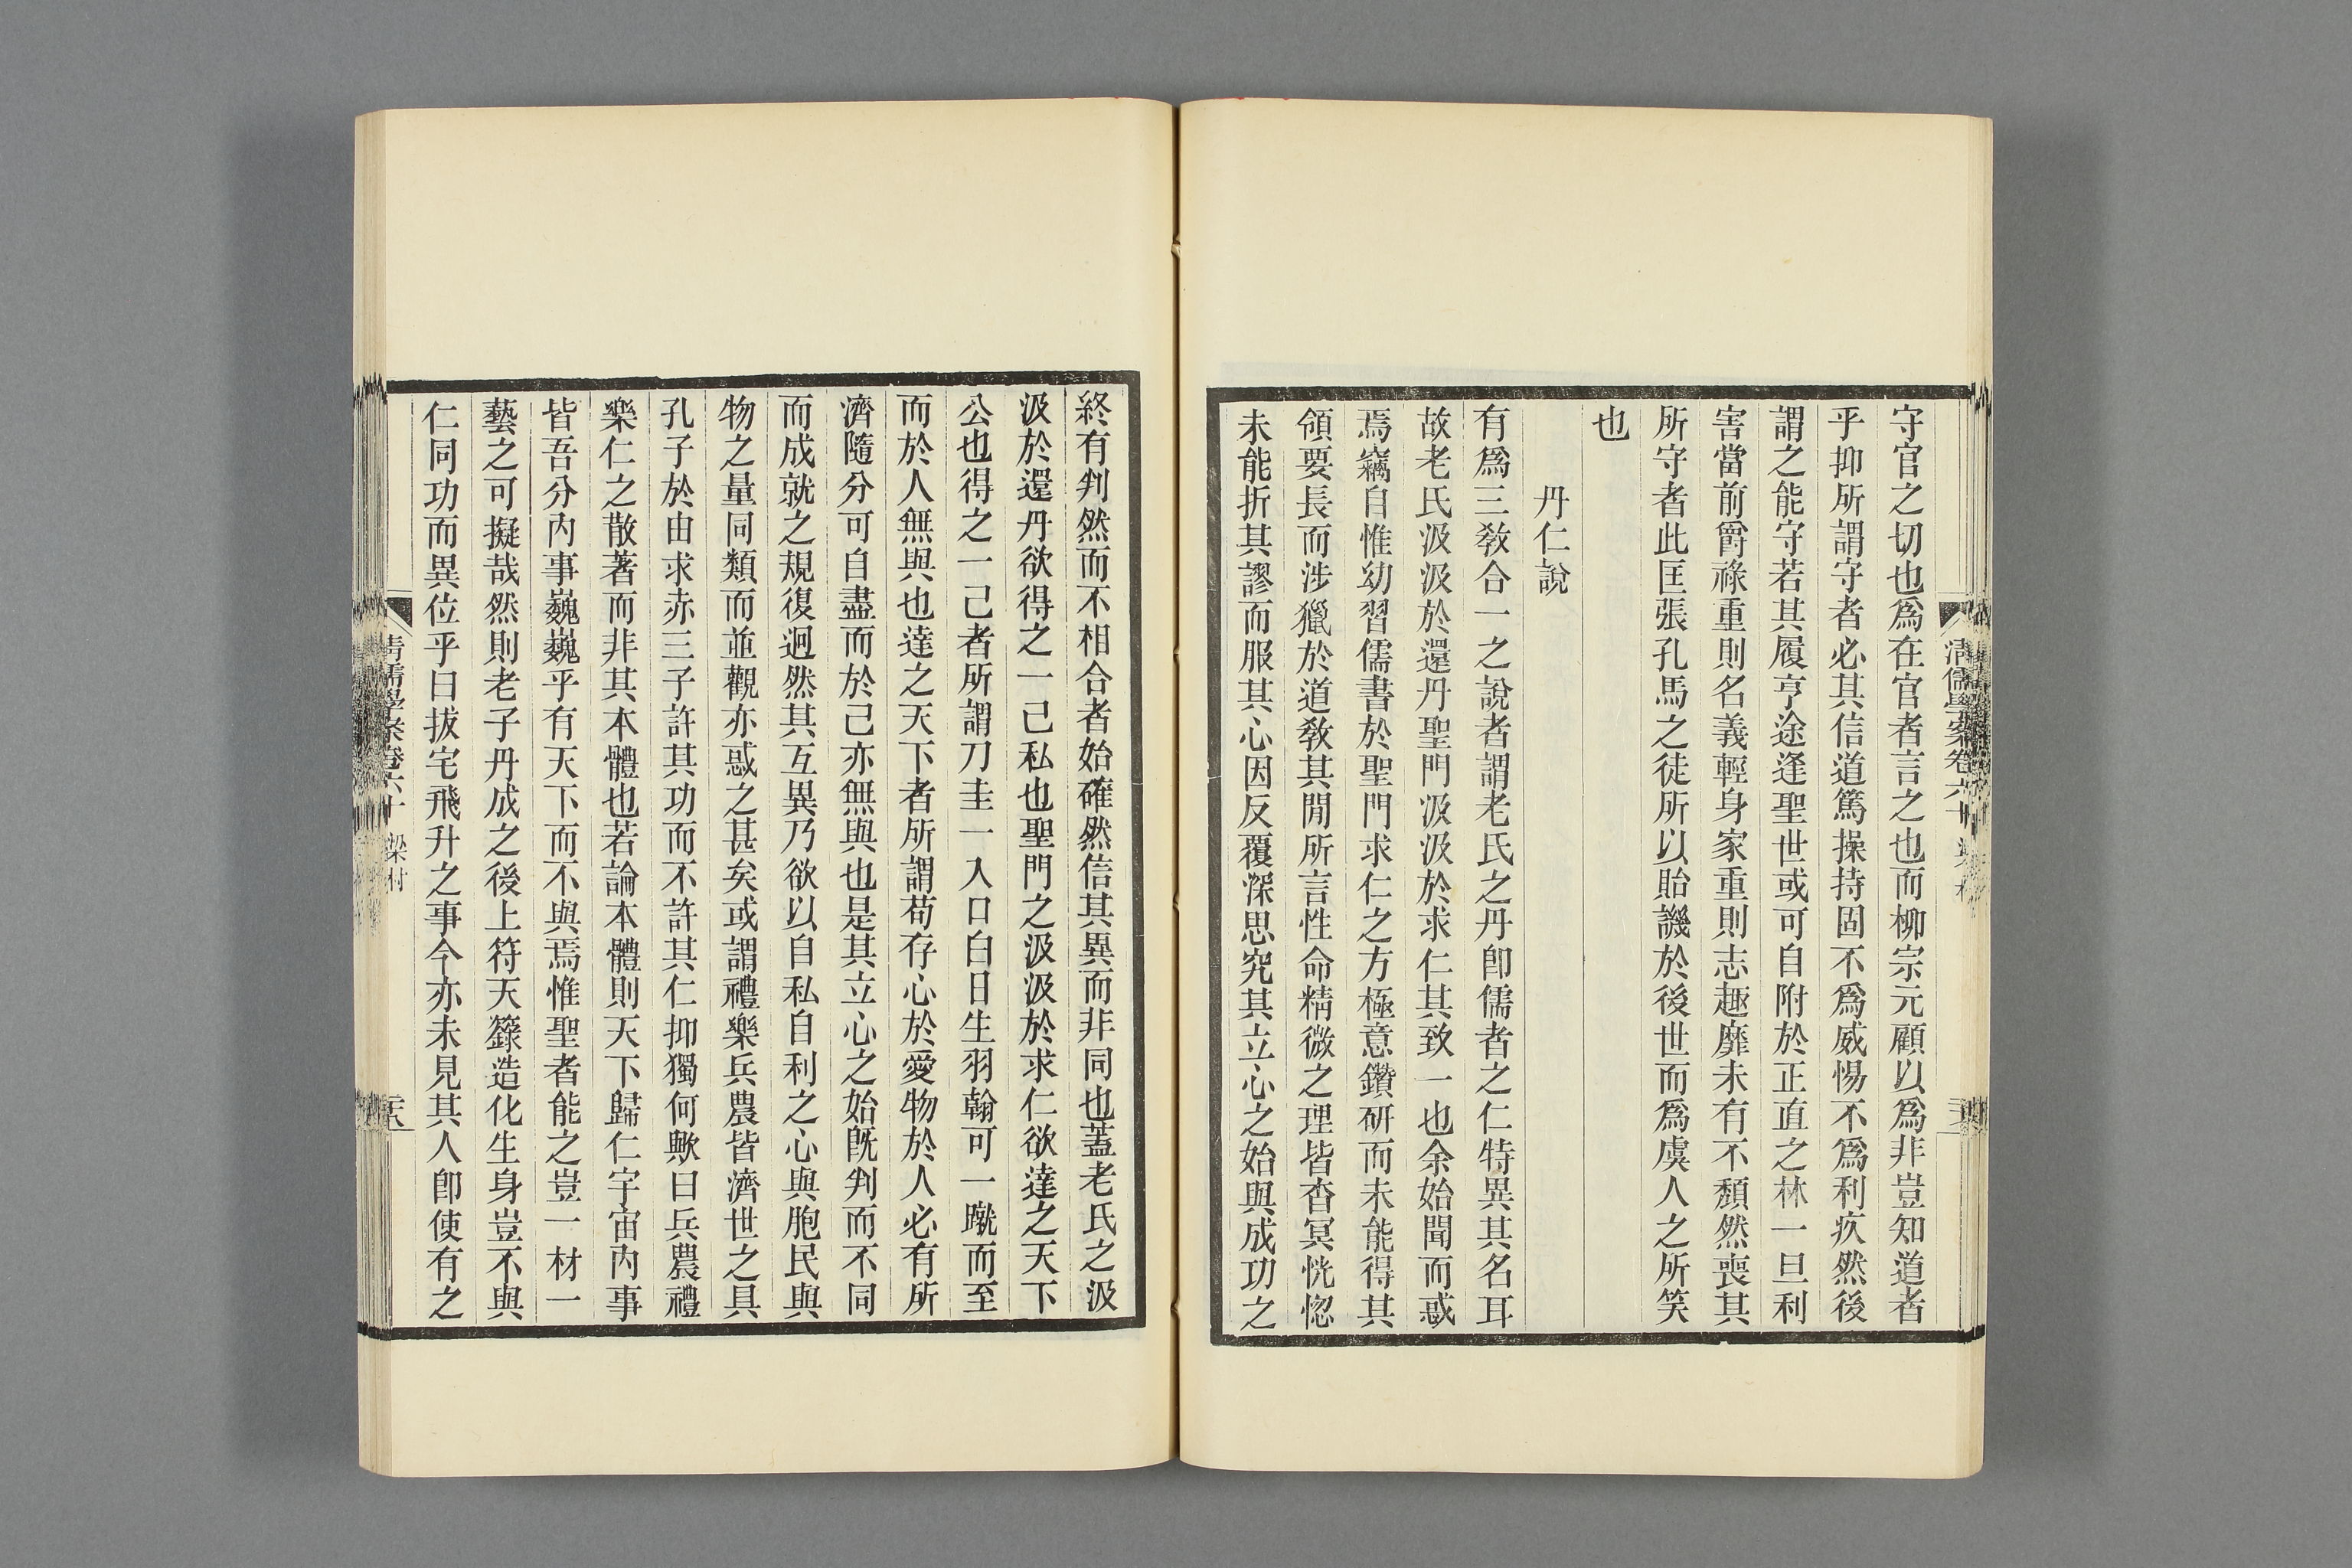 守官之切也爲在官者言之也而柳宗元顧以爲非豈知道者
乎抑所謂守者必其信道篤操持固不爲威惕不爲利疚然後
謂之能守若其履亨途逢聖世或可自附於正直之林一旦利
害當前爵祿重則名義輕身家重則志趣靡未有不頹然喪其
所守者此匡張孔馬之徒所以貽譏於後世而爲虞人之所笑
也
丹仁說
有爲三敎合一之說者謂老氏之丹卽儒者之仁特異其名耳
故老氏汲汲於還丹聖門汲汲於求仁其致一也余始聞而惑
焉竊自惟幼習儒書於聖門求仁之方極意鑽研而未能得其
領要長而涉獵於道敎其閒所言性命精微之理皆杳冥恍惚
未能折其謬而服其心因反覆深思究其立心之始與成功之
終有判然而不相合者始確然信其異而非同也蓋老氏之汲
汲於還丹欲得之一己私也聖門之汲汲於求仁欲達之天下
公也得之一己者所謂刀圭一入口白日生羽翰可一蹴而至
而於人無與也達之天下者所謂苟存心於愛物於人必有所
濟隨分可自盡而於己亦無與也是其立心之始旣判而不同
而成就之規復迥然其互異乃欲以自私自利之心與胞民與
物之量同類而並觀亦惑之甚矣或謂禮樂兵農皆濟世之具
孔子於由求赤三子許其功而不許其仁抑獨何歟曰兵農禮
樂仁之散著而非其本體也若論本體則天下歸仁宇宙內事
皆吾分內事巍巍乎有天下而不與焉惟聖者能之豈一材一
藝之可擬哉然則老子丹成之後上符天籙造化生身豈不與
仁同功而異位乎曰拔宅飛升之事今亦未見其人卽使有之
清儒學案卷六十 梁村